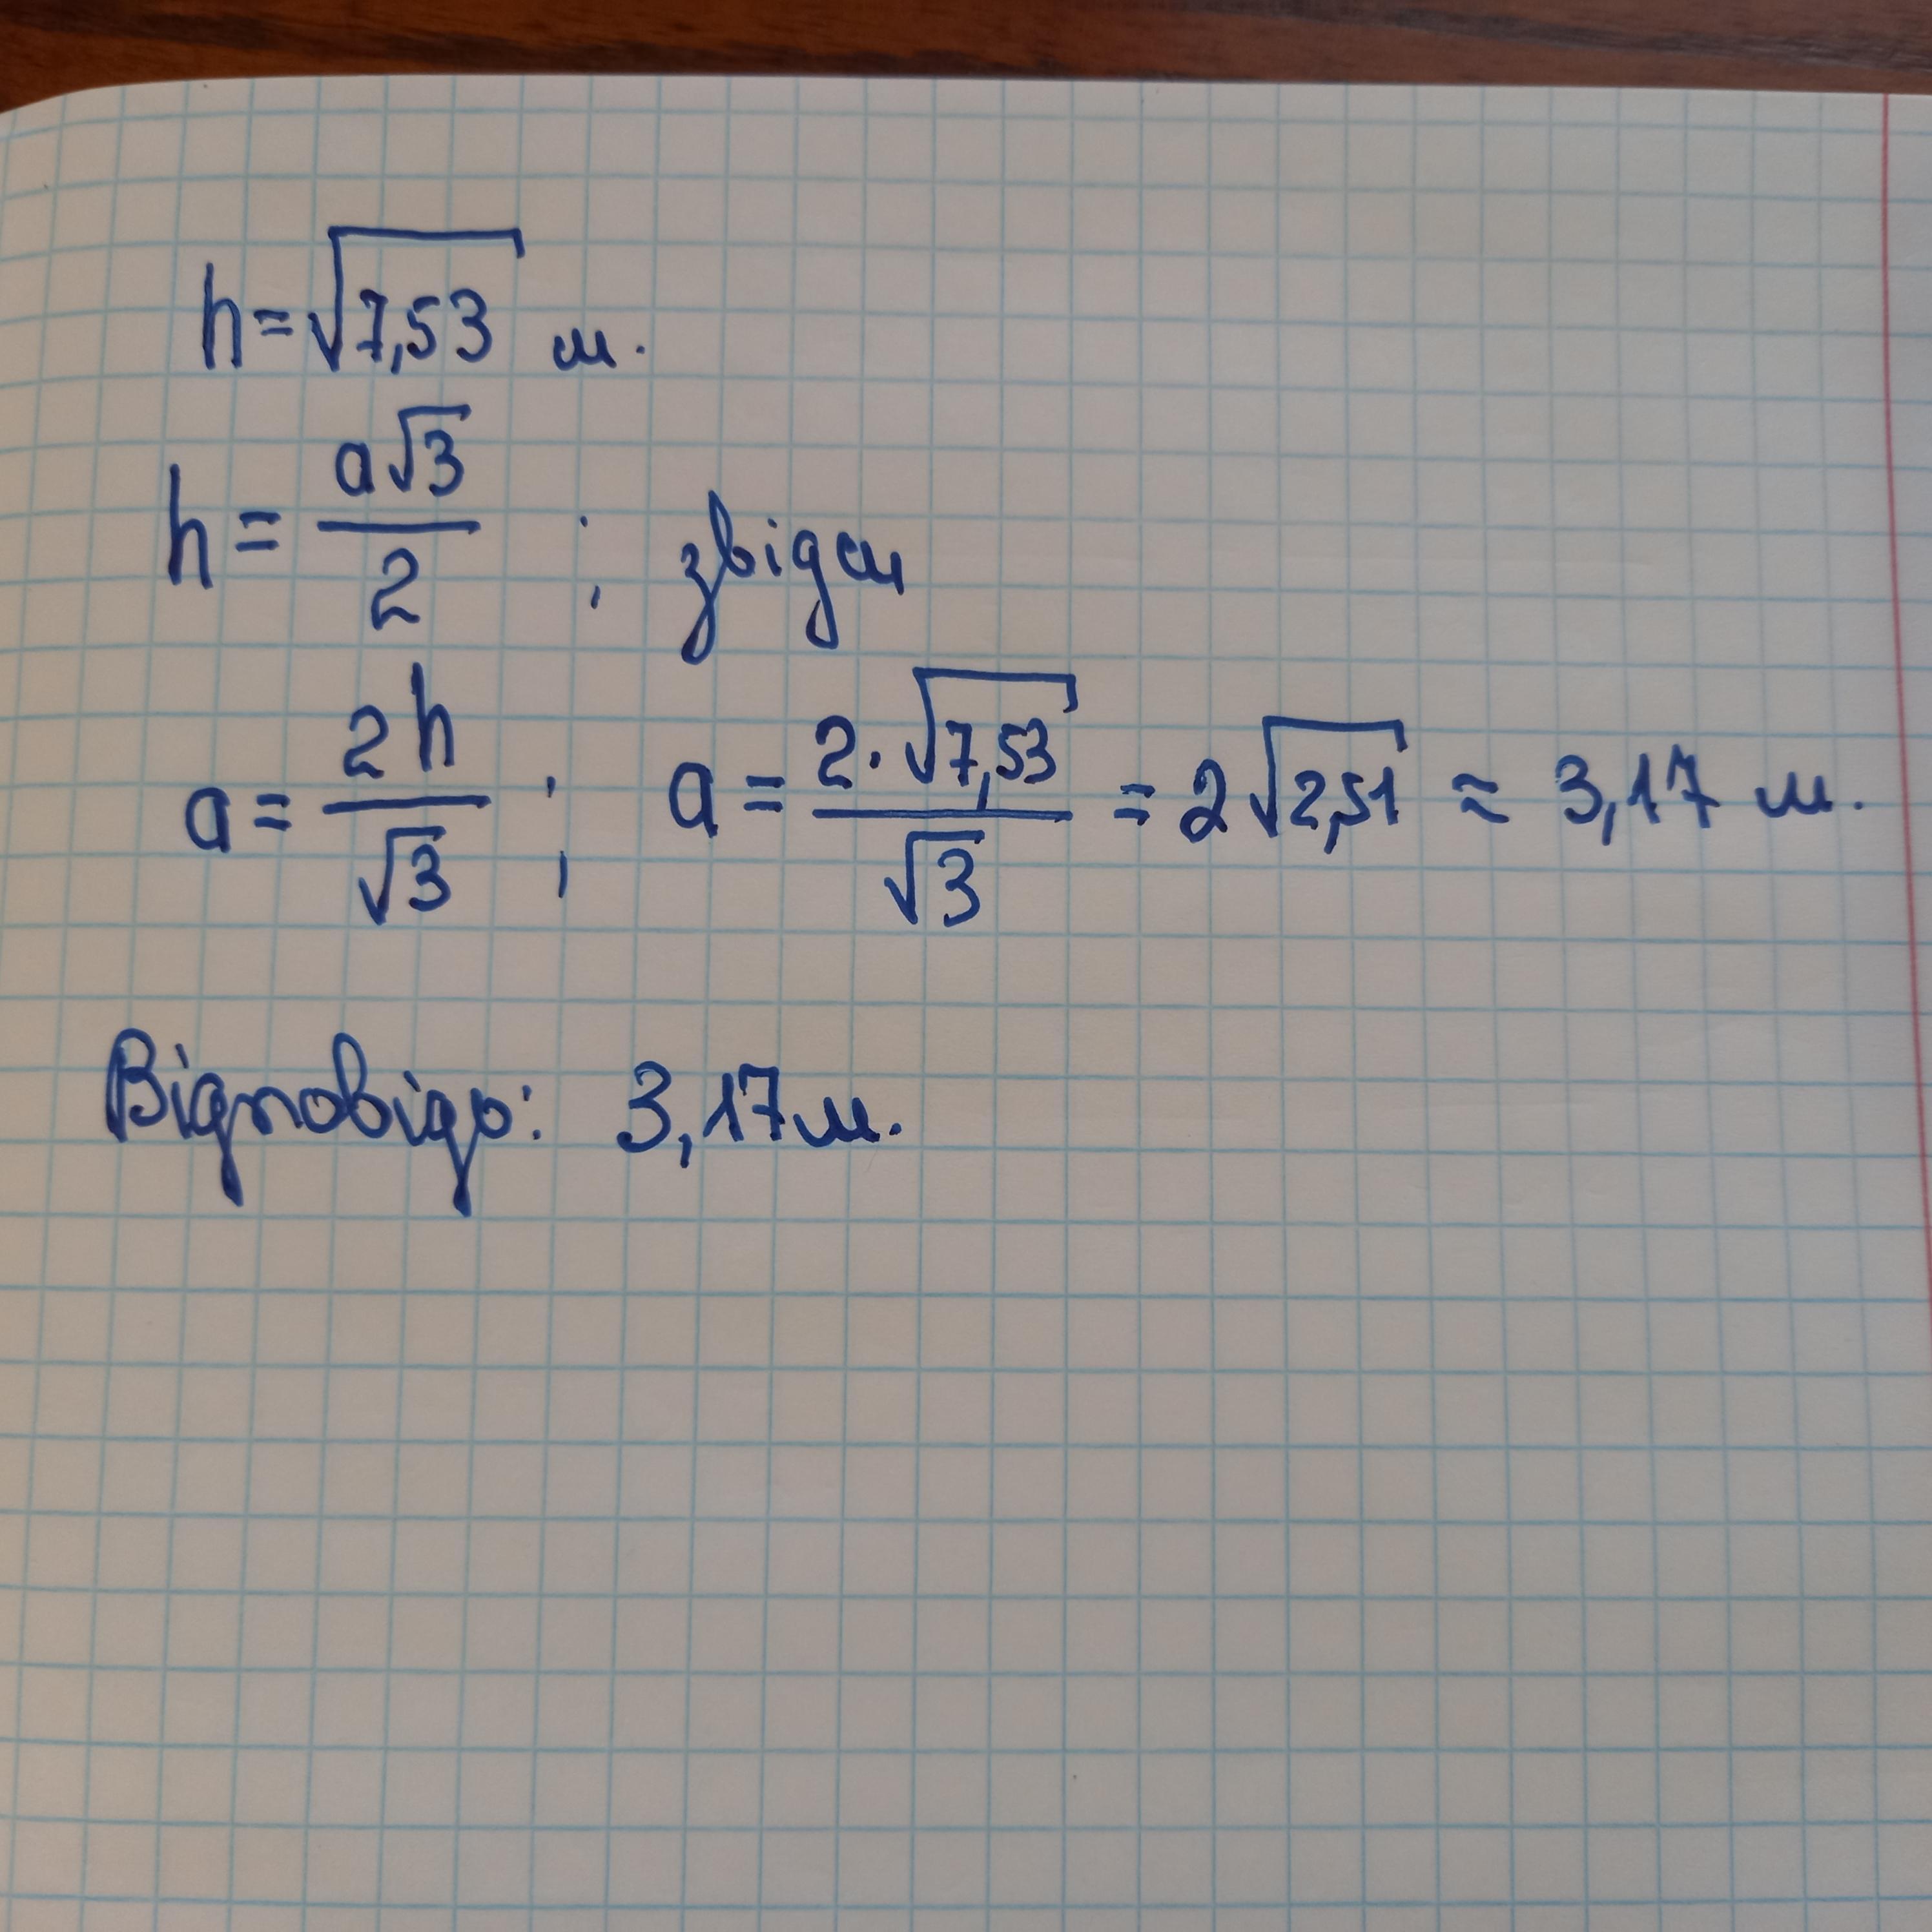 h=√7,53 м.
h = a√3/2 ; звідси
a = 2h/√3 ; a = 2·√7,53/√3 = 2√2,51 ≈ 3,17 м.
Відповідь: 3,17м.